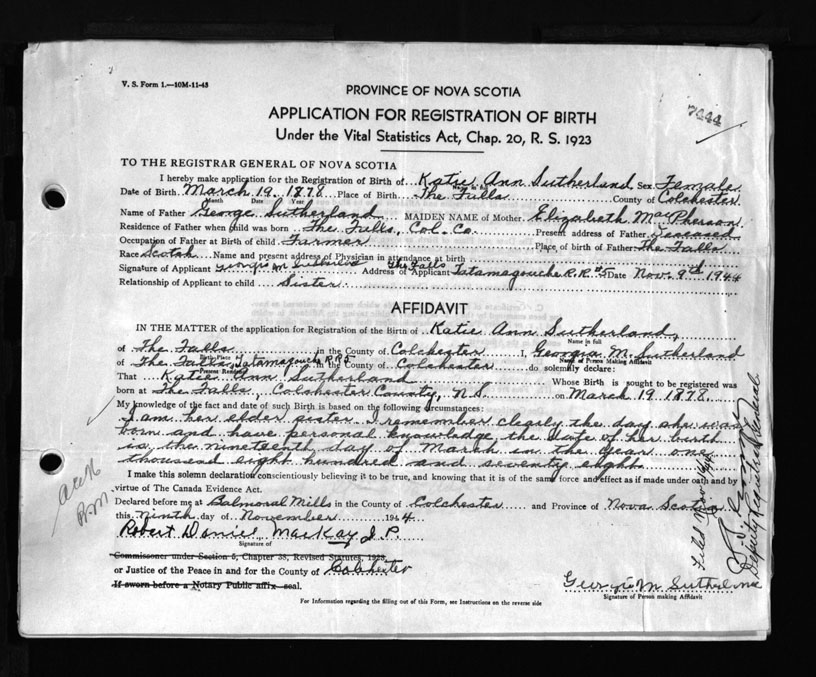 V. S. Form 1.—10M-11-43
PROVINCE OF NOVA SCOTIA
7444
APPLICATION FOR REGISTRATION OF BIRTH
Under the Vital Statistics Act, Chap. 20, R. S. 1923
TO THE REGISTRAR GENERAL OF NOVA SCOTIA
I hereby make application for the Registration of Birth of Katie Ann Sutherland Sex Female
Name in full
Date of Birth March 19 1878 Place of Birth The Falls County of Colchester
Month Date Year
Name of Father George Sutherland MAIDEN NAME of Mother Elizabeth MacPherson
Residence of Father when child was born The Falls, Col. Co. Present address of Father Deceased
Occupation of Father at Birth of child Farmer Place of birth of Father The Falls
Race Scotch Name and present address of Physician in attendance at birth
Signature of Applicant Georgie M Sutherland The Falls Address of Applicant Tatamagouche R.R.#5 Date Nov. 9th 1944
Relationship of Applicant to child Sister
AFFIDAVIT
IN THE MATTER of the application for Registration of the Birth of Katie Ann Sutherland,
Name in full
of The Falls in the County of Colchester I, Georgia M. Sutherland
Birth Place Name of Person Making Affidavit
of The Falls, Tatamagouche RR5 in the County of Colchester do solemnly declare:
Present Residence
That Katie Ann Sutherland Whose Birth is sought to be registered was
born at The Falls, Colchester County, N.S. on March 19 1878.
My knowledge of the fact and date of such Birth is based on the following circumstances:
I am her elder sister. I remember clearly the day she was
born and have personal knowledge, the date of her birth
is the nineteenth day of March in the year one
thousand eight hundred and seventy eight.
I make this solemn declaration conscientiously believing it to be true, and knowing that it is of the same force and effect as if made under oath and by
virtue of The Canada Evidence Act.
Declared before me at Balmoral Mills in the County of Colchester and Province of Nova Scotia
this Ninth day of November 1944
Robert Daniel MacKay J. P.
Signature of
Commissioner under Section 6, Chapter 38, Revised Statutes, 1923,
or Justice of the Peace in and for the County of Colchester
If sworn before a Notary Public affix seal.
Georgie M Sutherland
Signature of Person making Affidavit
For Information regarding the filling out of this Form, see Instructions on the reverse side
Filed Nov
Deputy Registrar General